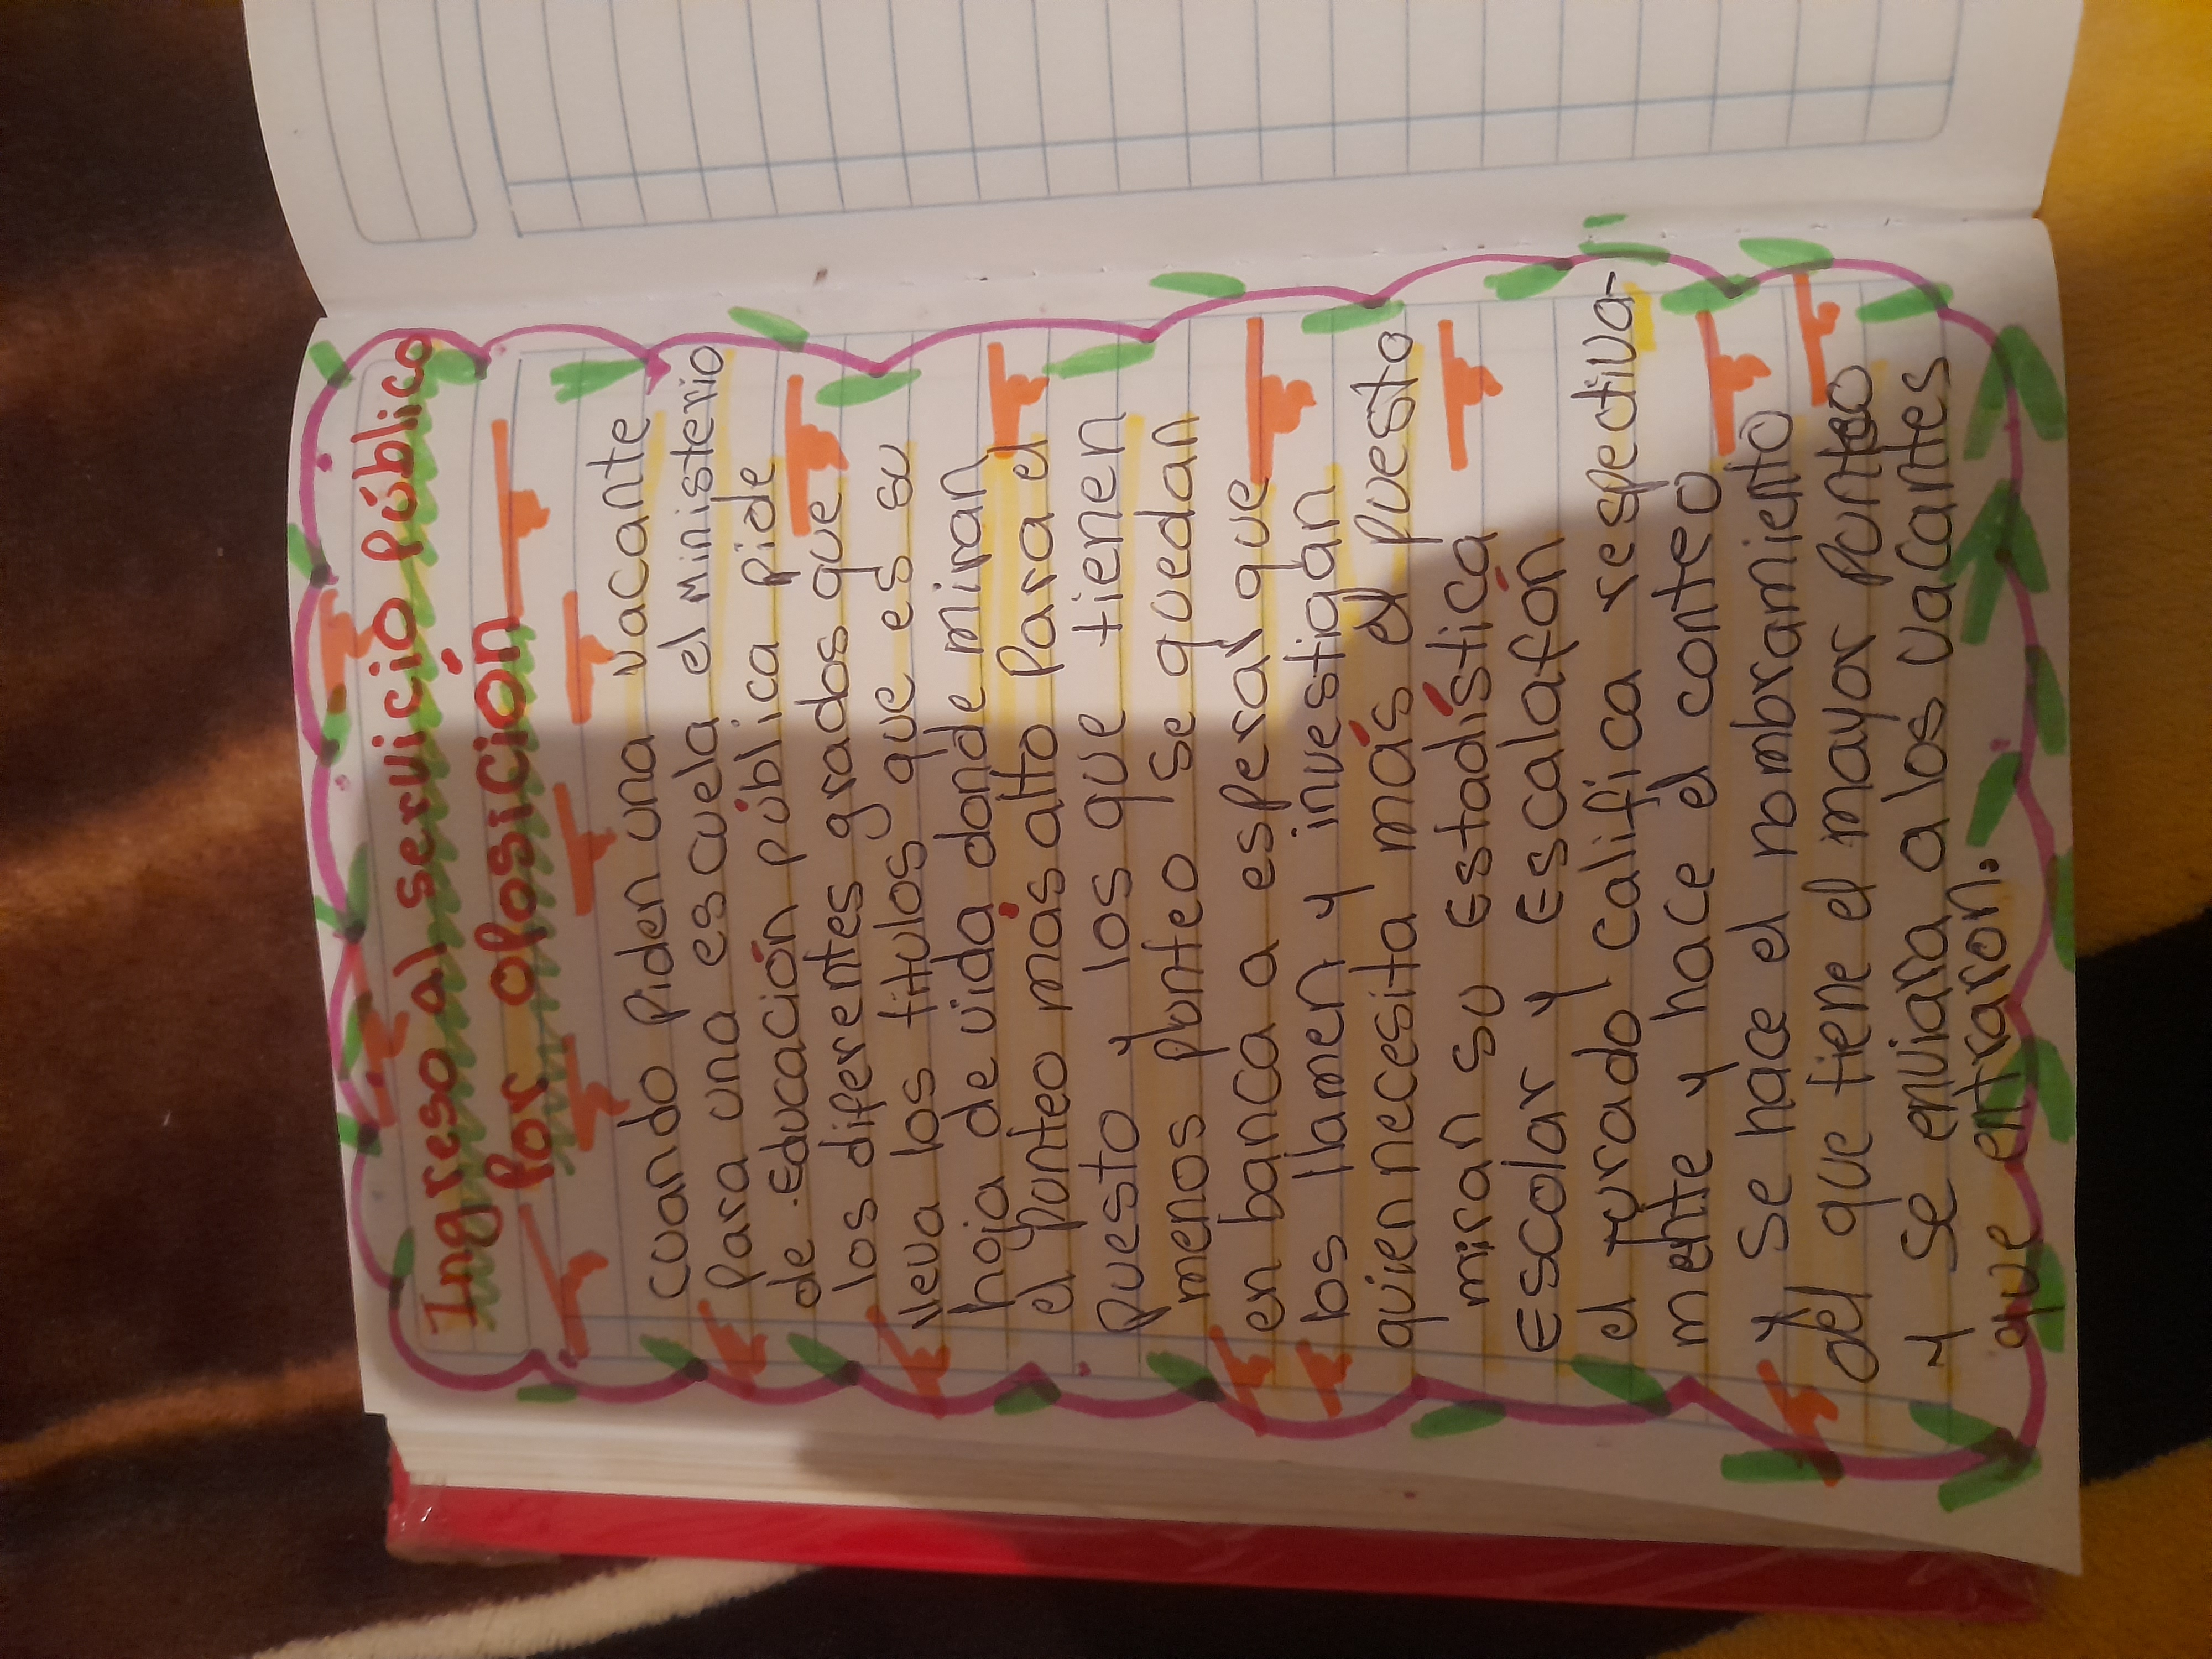 Ingreso al servicio público
Por oposición
cuando piden una vacante
para una escuela el Ministerio
de Educación pública pide
los diferentes grados que
lleva los titulos que es su
hoja de vida donde miran
el punteo más alto para el
puesto y los que tienen
menos punteo se quedan
en banca a esperar que
los llamen y investigan
quien necesita más el puesto
miran su Estadística
Escolar y Escalafón
el jurado califica respectiva-
mente y hace el conteo
y se hace el nombramiento
del que tiene el mayor punteo
y se enviara a los vacantes
que entraron.